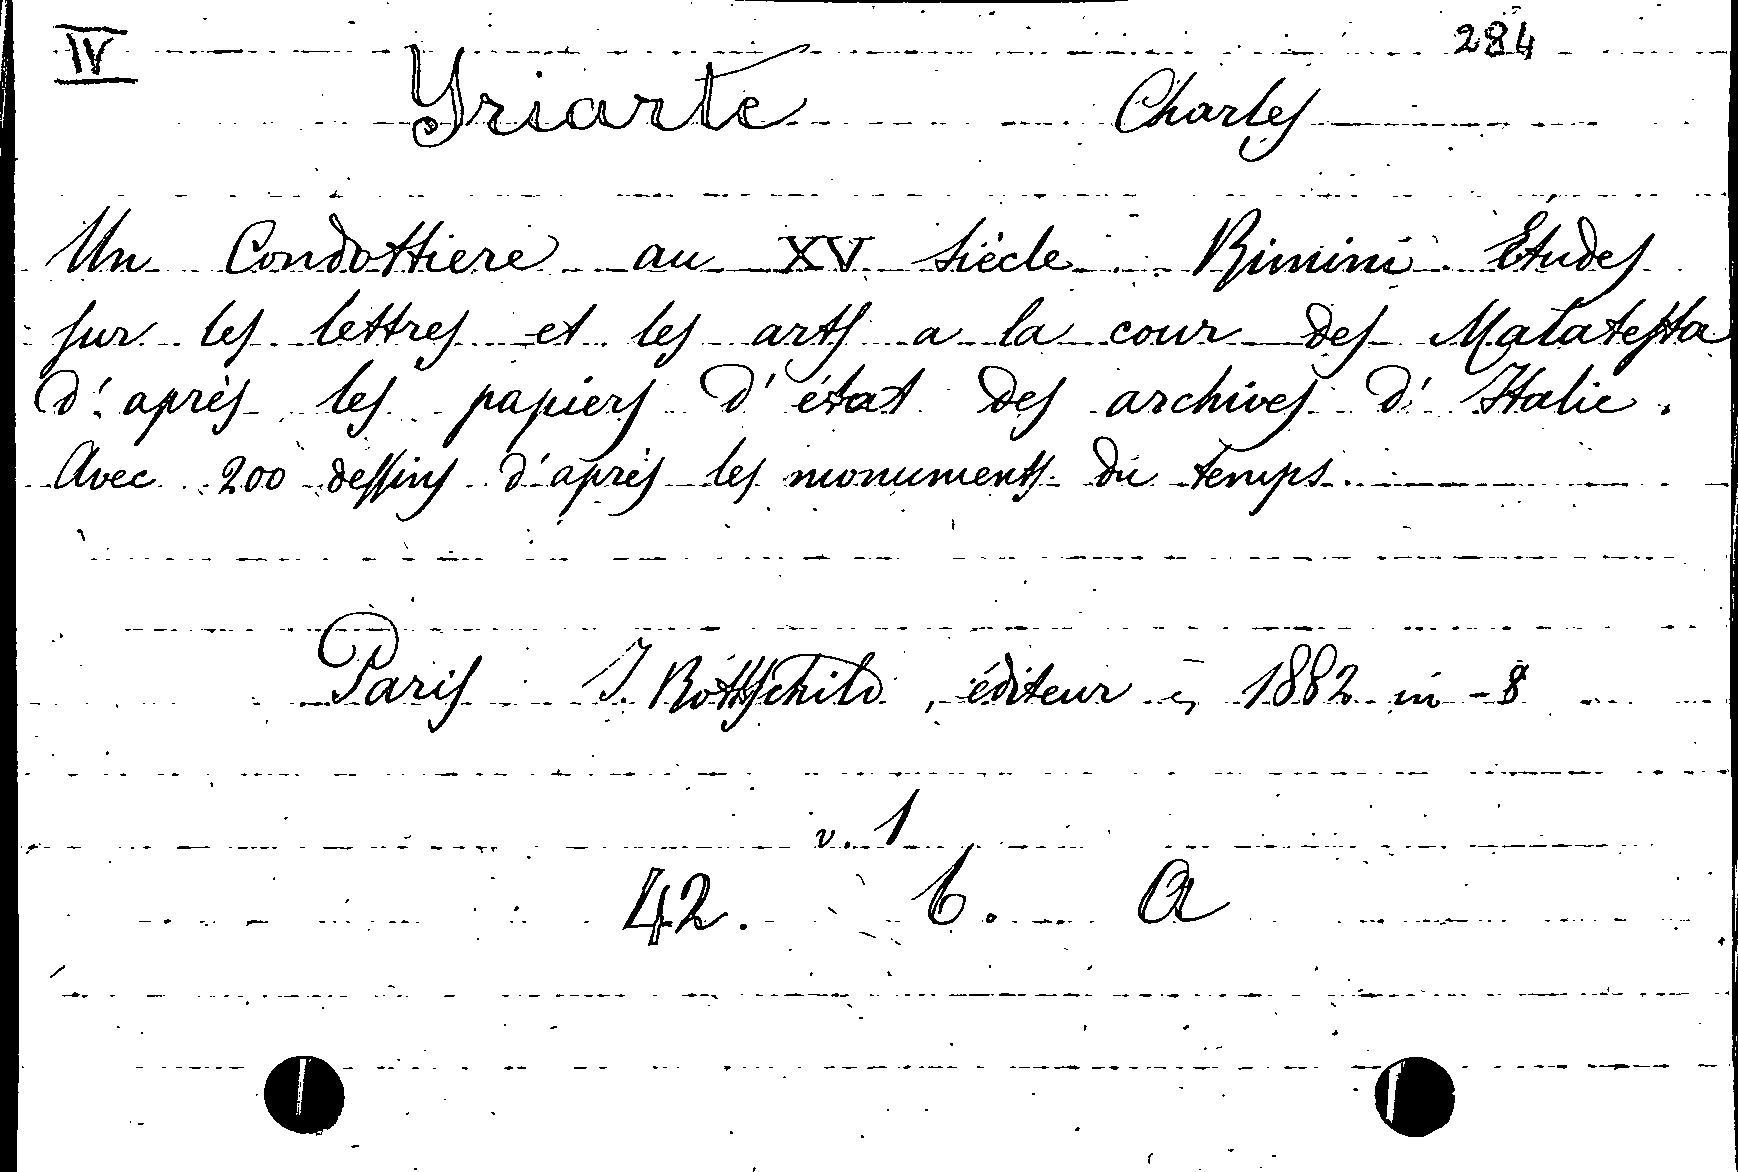 IV 284
Yriarte Charles
Un Condottiere au XV siècle. Rimini. Études
sur les lettres et les arts a la cour des Malatesta
d'après les papiers d'état des archives d'Italie.
Avec 200 dessins d'après les monuments du temps.
Paris J. Rottschild, éditeur 1882 in-8
v. 1
42. b. a